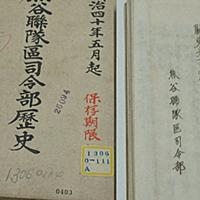 治四十年五月起
熊谷聯隊區司令部歷史
保存期限
1306
0-111
A
0403
熊谷聯隊區司令部